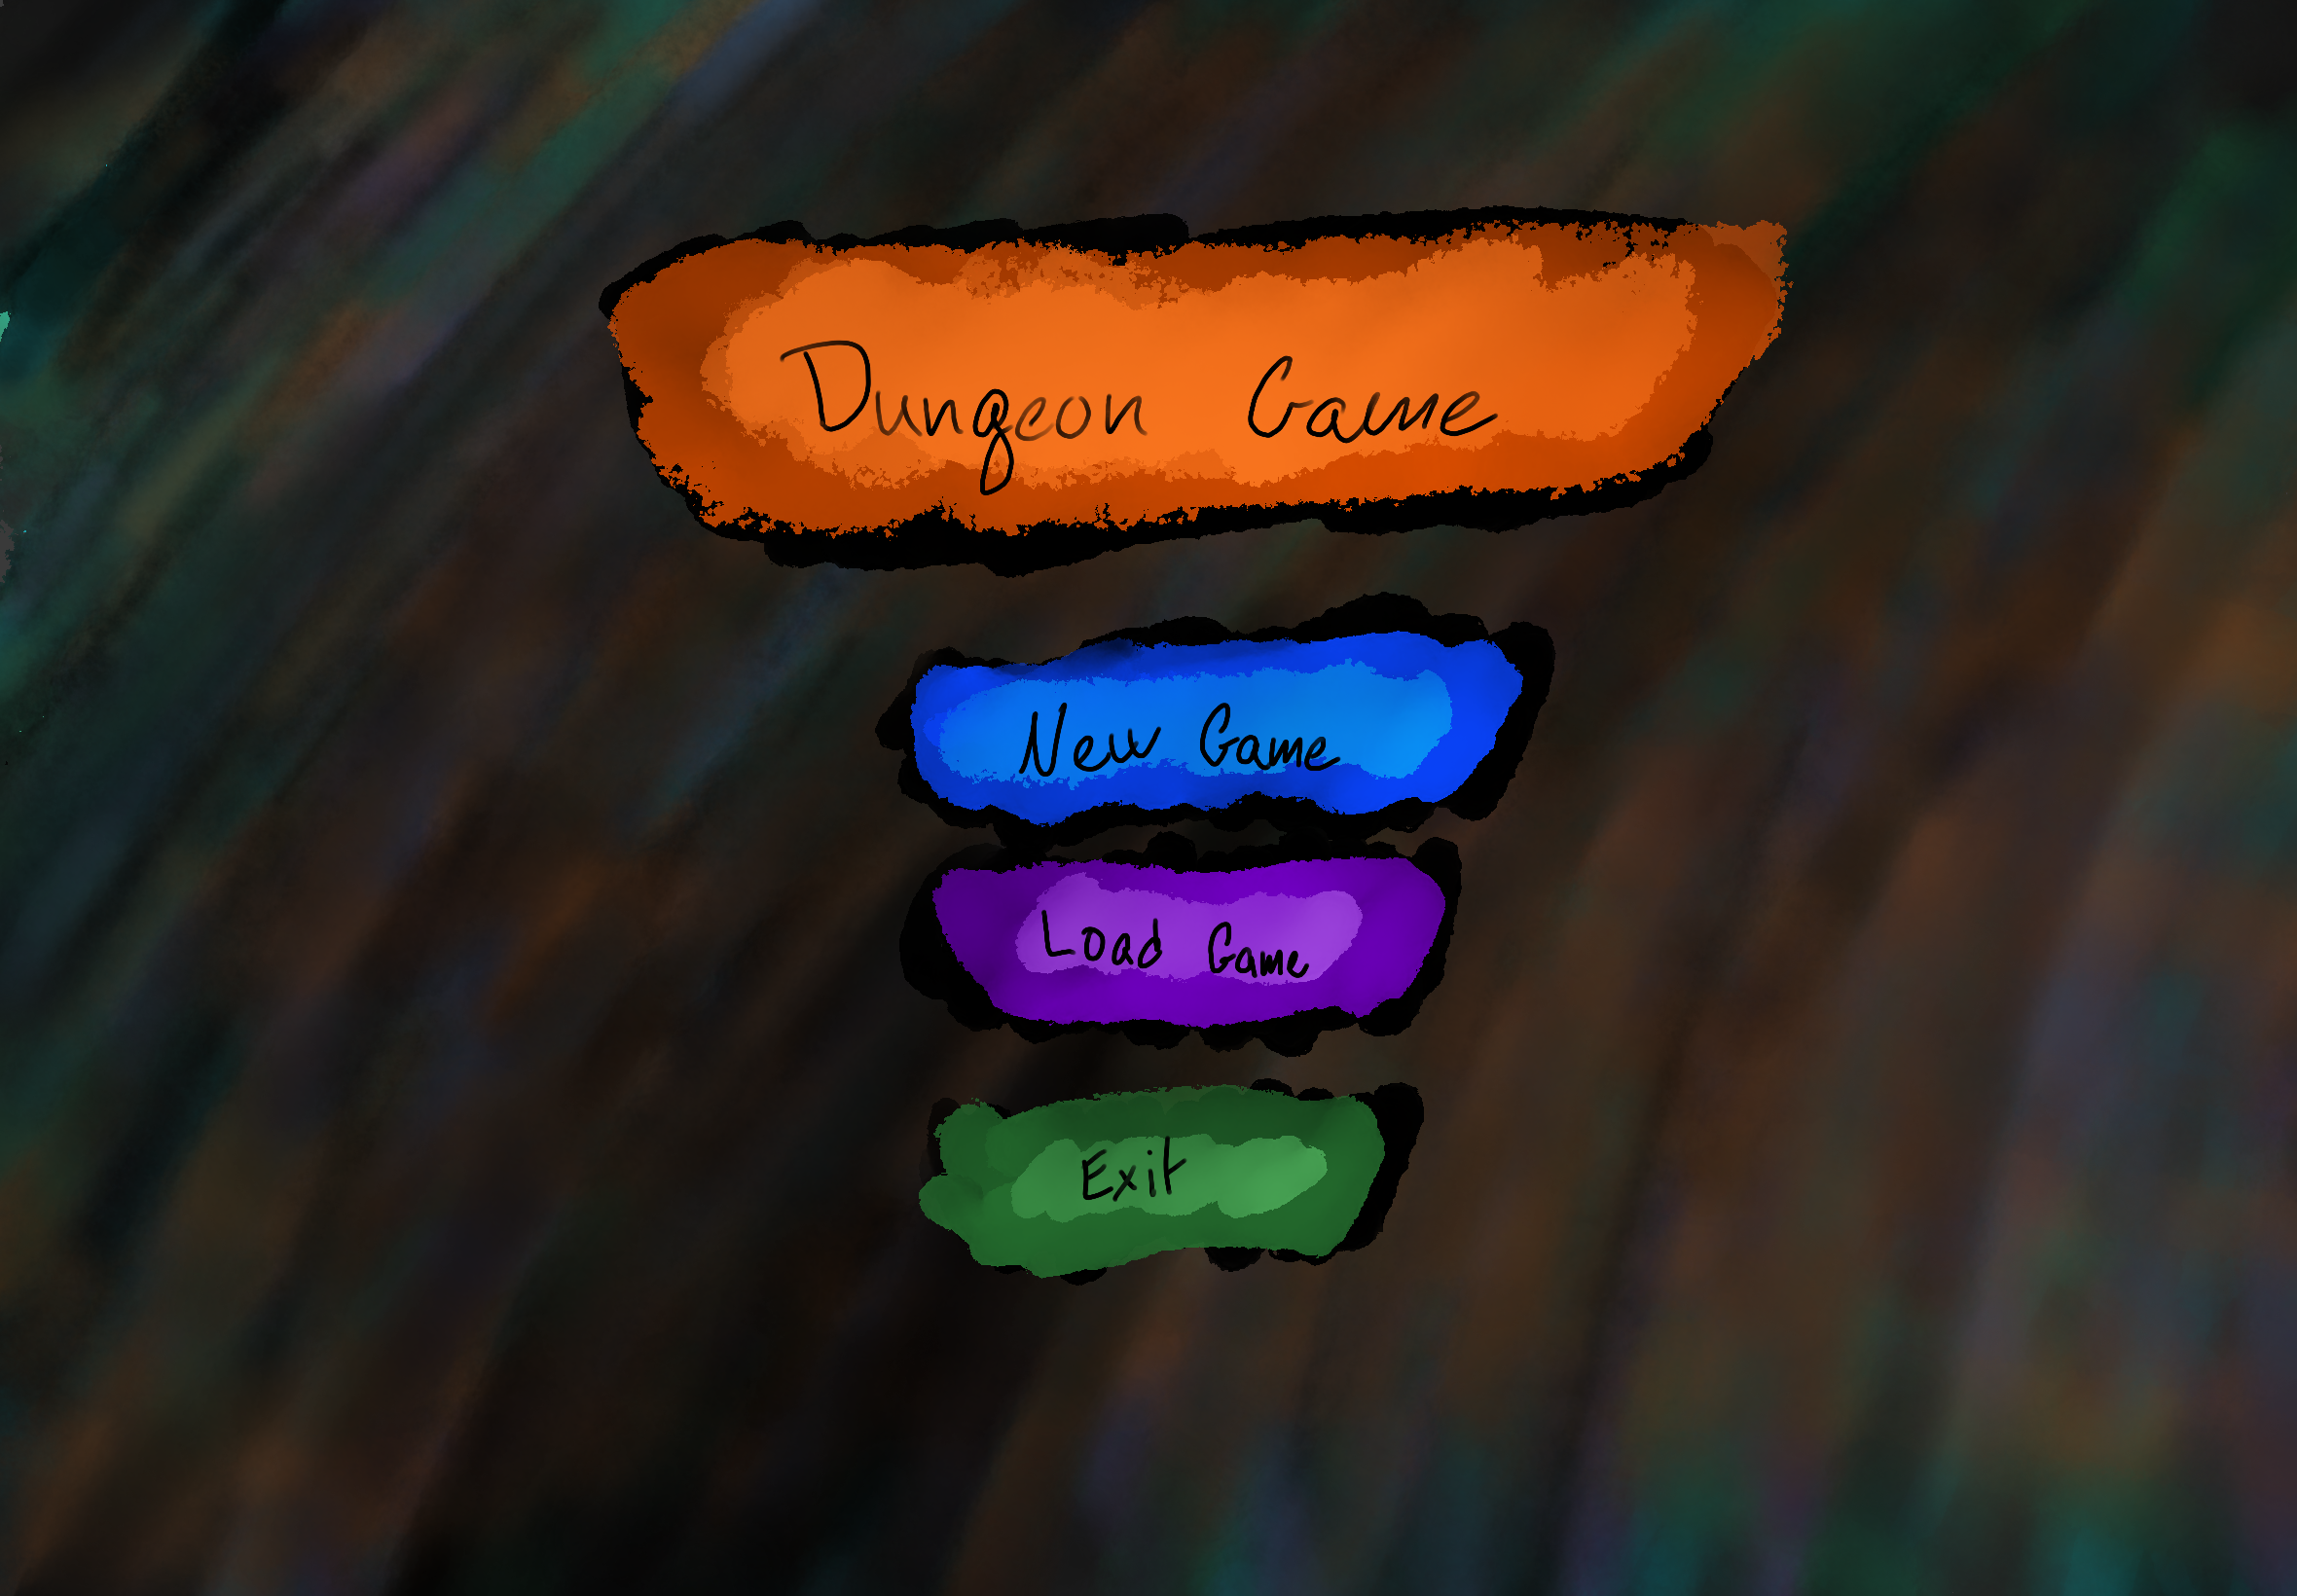 Dungeon Game
New Game
Load Game
Exit